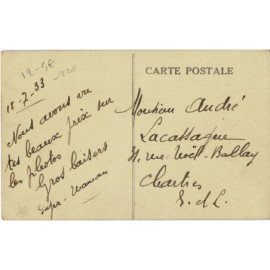 18-7-33
Nous avons vu
tes beaux prix sur
les photos
Gros baisers
Papa - Maman
CARTE POSTALE
Monsieur André
Lacassagne
31, rue Noël-Ballay
Chartres
E. et L.